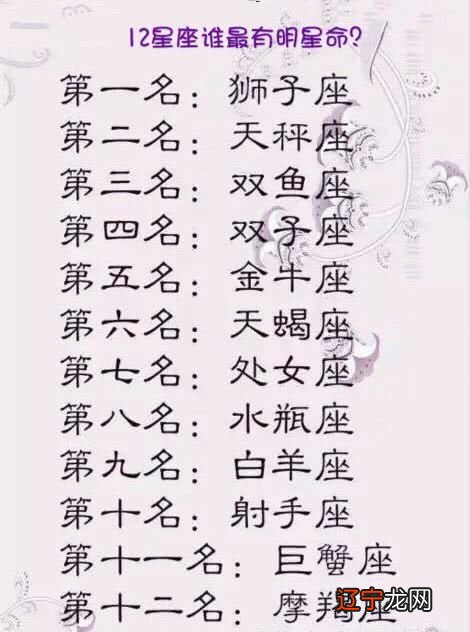 12星座谁最有明星命?
第一名：狮子座
第二名：天秤座
第三名：双鱼座
第四名：双子座
第五名：金牛座
第六名：天蝎座
第七名：处女座
第八名：水瓶座
第九名：白羊座
第十名：射手座
第十一名：巨蟹座
第十二名：摩羯座
辽宁龙网